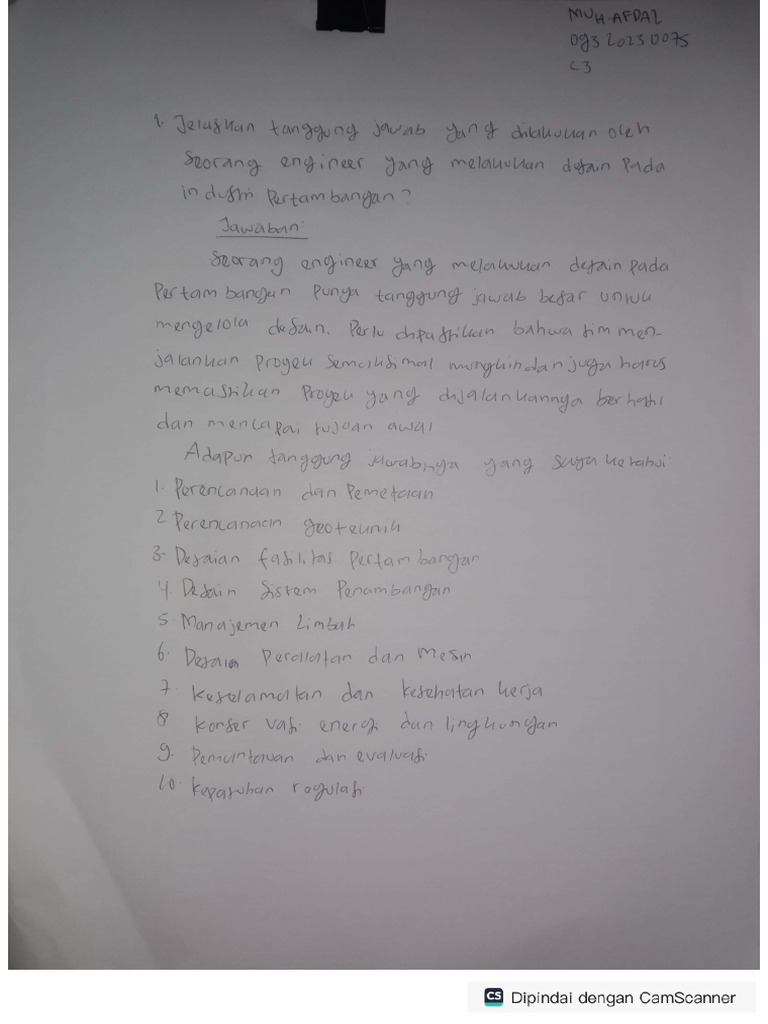 MUH. AFDAL
09320230075
C3
1. Jelaskan tanggung jawab yang dilakukan oleh
Seorang engineer yang melakukan desain Pada
industri Pertambangan?
Jawaban:
Seorang engineer yang melakukan desain Pada
Pertambangan Punya tanggung jawab besar untuk
mengelola desain. Perlu dipastikan bahwa tim men-
jalankan Proyek semaksimal mungkin dan juga harus
memastikan Proyek yang dijalankannya berhasil
dan mencapai tujuan awal
Adapun tanggung jawabnya yang saya ketahui:
1. Perencanaan dan Pemetaan
2 Perencanaan geoteknik
3- Desaian fasilitas Pertambangan
4. Desain Sistem Penambangan
5. Manajemen Limbah
6. Desain Peralatan dan Mesin
7. Keselamatan dan kesehatan kerja
8 konservasi energi dan lingkungan
9. Pemantauan dan evaluasi
10. Kepatuhan regulasi
CS Dipindai dengan CamScanner